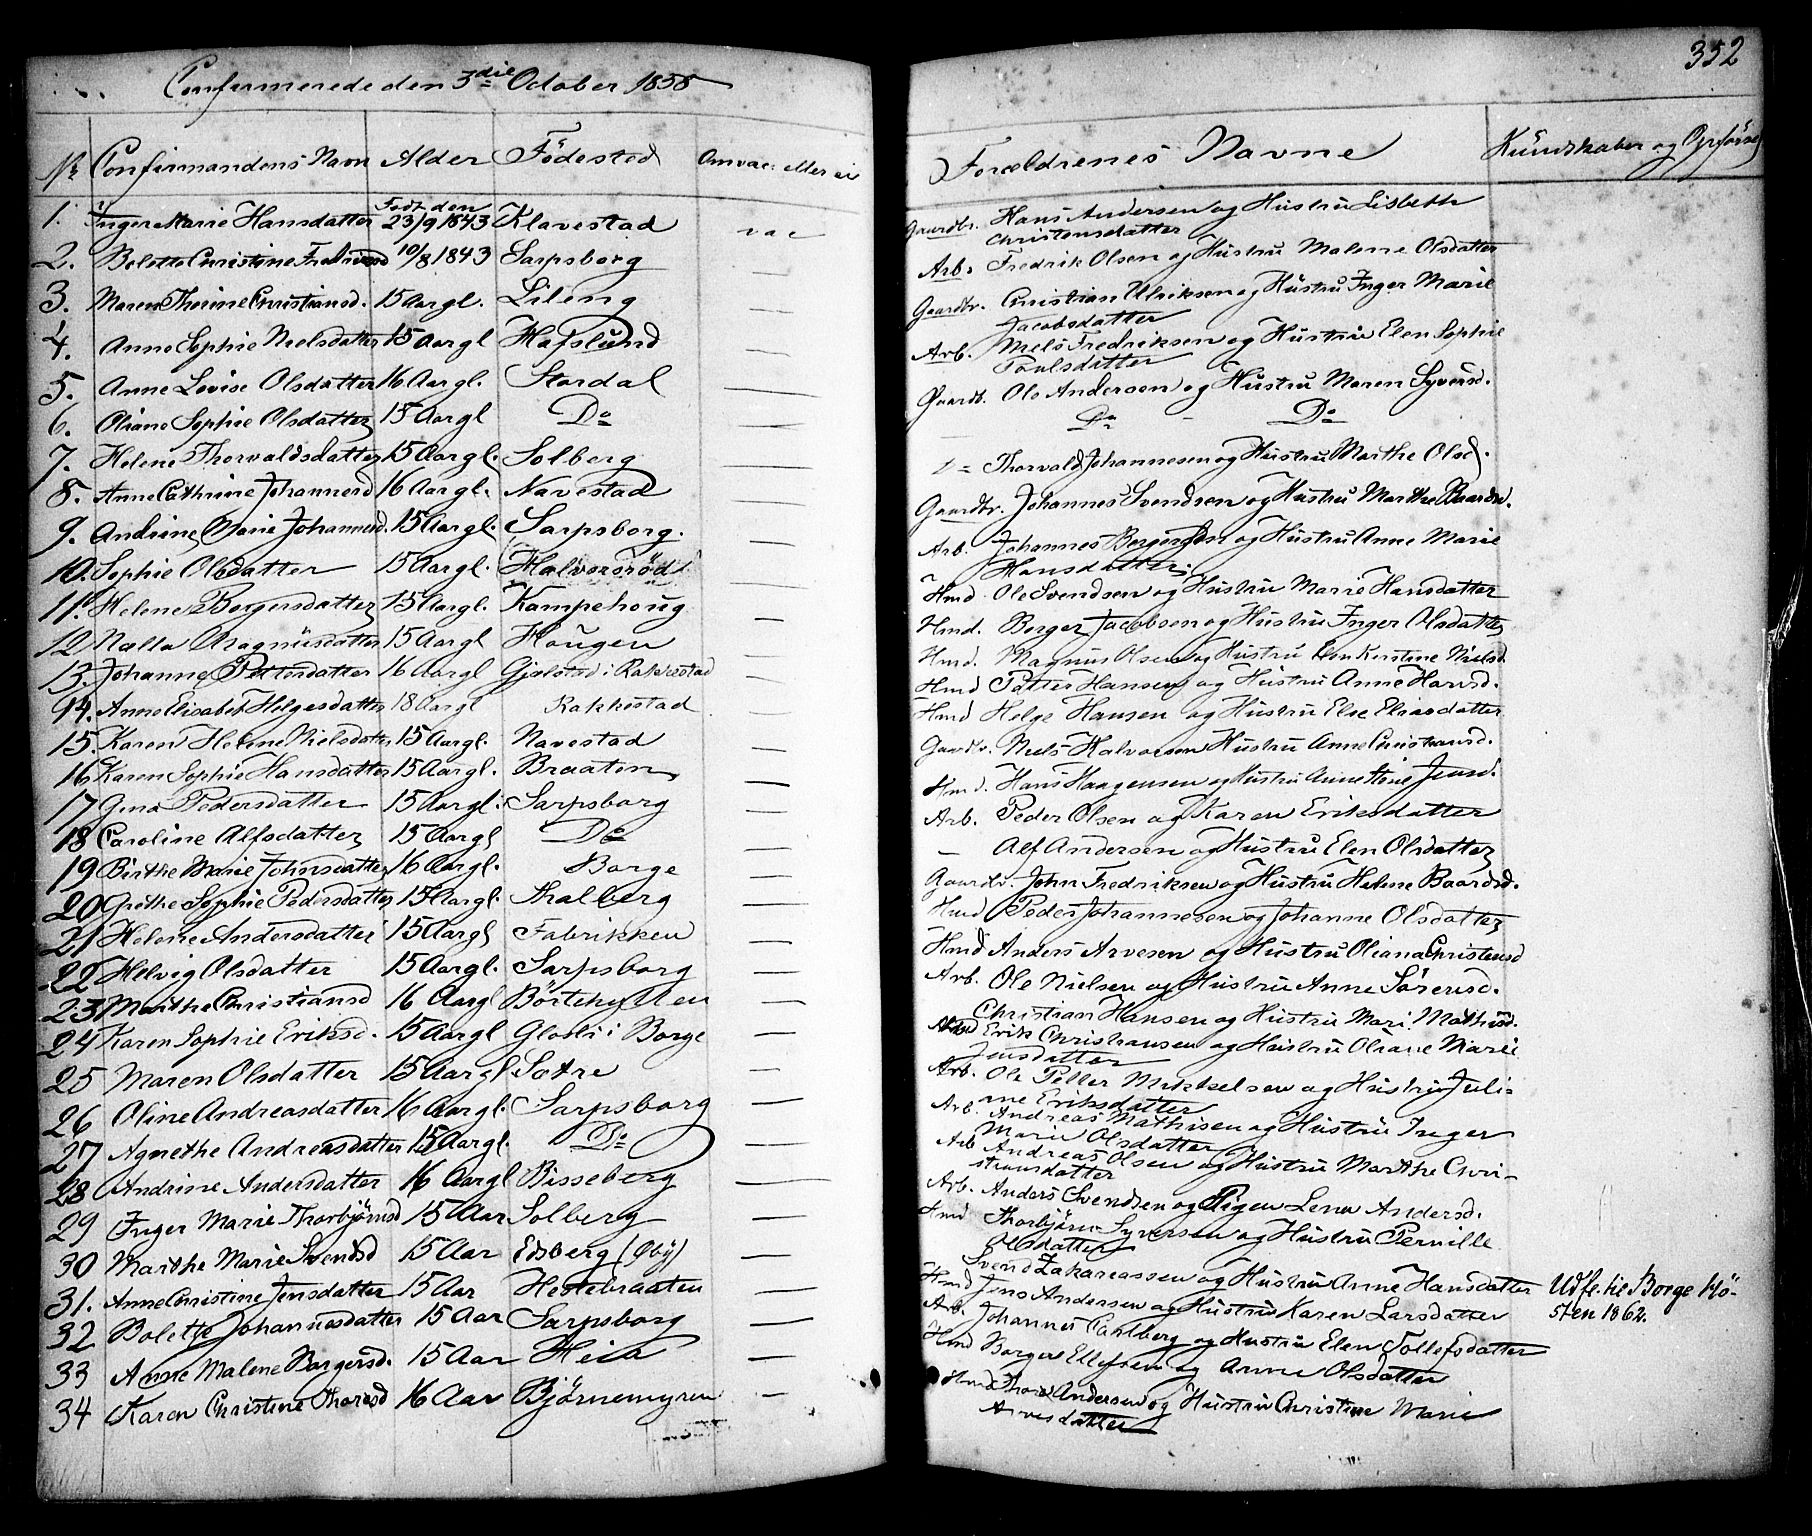 352
Confirmerede den 3die October 1858
No Confirmandens Navn Alder Födested
Forældrenes Navne Kundskaber og Opførsel
1. Inger Marie Hansdatter Født den 23/9 1843 Klavestad vac
Gaardbr. Hans Andersen og Hustru Lisbeth
Christensdatter
2. Christine 10/8 1843 Sarpsborg —
Arb. Fredrik Olsen og Hustru Malene Olsdatter
3. Maren Christiansd. 15 Aar gl. Lileng —
Gaardbr. Christian Ulriksen og Hustru Inger Marie
Jacobsdatter
4. Anne Sophie Nielsdatter 15 Aar gl Hafslund —
Arb. Niels Fredriksen og Hustru Elen Sophie
Poulsdatter
5. Anne Lovise Olsdatter 16 Aar gl. Stordal —
Gaardb. Ole Andersen og Hustru Maren Syversd.
6. Oliane Sophie Olsdatter 15 Aar gl Do —
Do - Do
7. Helene Thorvaldsdatter 15 Aar gl. Solberg —
Thorvald Johannesen og Hustru Marthe Olsd.
8. Anne Cathrine Johannesd 16 Aar gl. Navestad —
Gaardbr. Johannes Svendsen og Hustru Marthe
9. Andrine Marie Johannesd. 15 Aar gl. Sarpsborg. —
Arb. Johannes Borgersen og Hustru Anne Marie
Hansdatter.
10. Sophie Olsdatter 15 Aar gl. Halvorsröd —
Hmd. Ole Svendsen og Hustru Marie Hansdatter
11. Helene Borgersdatter 15 Aar gl. Kampehoug —
Hmd. Borger Jacobsen og Hustru Inger Olsdatter
12 Magnusdatter 15 Aar gl Hougen —
Hmd. Magnus Olsen og Hustru Kirstine Nielsd
13. Johanne Pettersdatter 16 Aar gl i Rakkestad —
Hmd Petter Hansen og Hustru Anne Hansd.
14. Anne Elisabeth Helgesdatter 18 Aar gl Rakkestad —
Hmd Helge Hansen og Hustru Else Eliasdatter
15. Karen Helene Nielsdatter 15 Aar gl. Navestad —
Gaardbr. Niels Halvorsen Hustru Anne Christiansd.
16 Karen Sophie Hansdatter 15 Aar gl. Braaten —
Hmd. Hans Haagensen og Hustru Anne Jensd.
17 Gina Pedersdatter 15 Aar gl. Sarpsborg —
Arb. Peder Olsen og Karen Eriksdatter
18 Caroline Alfsdatter 15 Aar gl Do —
— Alf Andersen og Hustru Elen Olsdatter
19 Birthe Marie Johnsdatter 16 Aar gl. Borge —
Gaardbr. John Fredriksen og Hustru Helene Baardsd.
20 Grethe Sophie Pedersdatter 15 Aar gl. Thalberg —
Hmd Peder Johannesen og Johanne Olsdatter
21 Helene Andersdatter 15 Aar gl Fabrikken —
Hmd Anders Arvesen og Hustru Oliana Christensd
22 Helvig Olsdatter 15 Aar gl. Sarpsborg —
Arb. Ole Nielsen og Hustru Anne Sörensd.
23 Marthe Christiansd 16 Aar gl Börtehytten —
Christian Hansen og Hustru Mari Mathisd.
24 Karen Sophie Eriksd. 15 Aar gl i Borge —
Erik Christiansen og Hustru Oliane Marie
Jensdatter
25 Maren Olsdatter 15 Aar gl Sotre —
Arb. Ole Petter Mikkelsen og Hustru Juli-
ane Eriksdatter
26 Oline Andreasdatter 16 Aar gl. Sarpsborg —
Arb. Andreas Mathisen og Hustru Inger
Marie Olsdatter
27 Agnethe Andreasdatter 15 Aar gl. Do —
Arb Andreas Olsen og Hustru Marthe Chri-
stiansdatter
28 Andrine Andersdatter 16 Aar gl Bisseberg —
Arb. Anders Svendsen og Pigen Lena Andersd.
29 Inger Marie Thorbjørnsd 15 Aar Solberg —
Hmd Thorbjørn Syversen og Hustru Pernille
Olsdatter
30 Marthe Marie Svendsd 15 Aar Edsberg (Øby) —
Svend Zakareassen og Hustru Anne Hansdatter Udfl. til Borge Hö-
sten 1862.
31. Anne Christine Jensdatter 15 Aar Hestebraaten —
Hmd Jens Andersen og Hustru Karen Larsdatter
32 Bolette Johannesdatter 15 Aar Sarpsborg —
Arb. Johannes Carlberg og Hustru Elen Tollefsdatter
33 Anne Malene Borgersd. 15 Aar Heia —
Hmd Borger Ellefsen og Anne Olsdatter
34 Karen Christine Thoresd 16 Aar Bjørnemyren —
Hmd Thore Andersen og Hustru Christine Marie
Arvesdatter